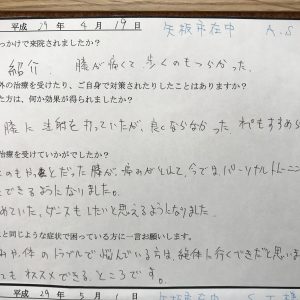 平成 29年 4月 19日 矢板市在中 A.S
っかけで来院されましたか？
紹介. 膝が痛くて、歩くのもつらかった。
外の治療を受けたり、ご自身で対策されたりしたことはありますか？
た方は、何か効果が得られましたか？
膝に注射を打っていたが、良くならなかった。
治療を受けていかがでしたか？
だった膝が、痛みがとれて、今では、パーソナルトレーニング
できるようになりました。
めていた、ダンスもしたいと思えるようになりました。
こと同じような症状で困っている方に一言お願いします。
や、体のトラブルで悩んでいる方は絶体に行くべきだと思いま
てもオススメできる、ところです。
平成 29年 5月 1日